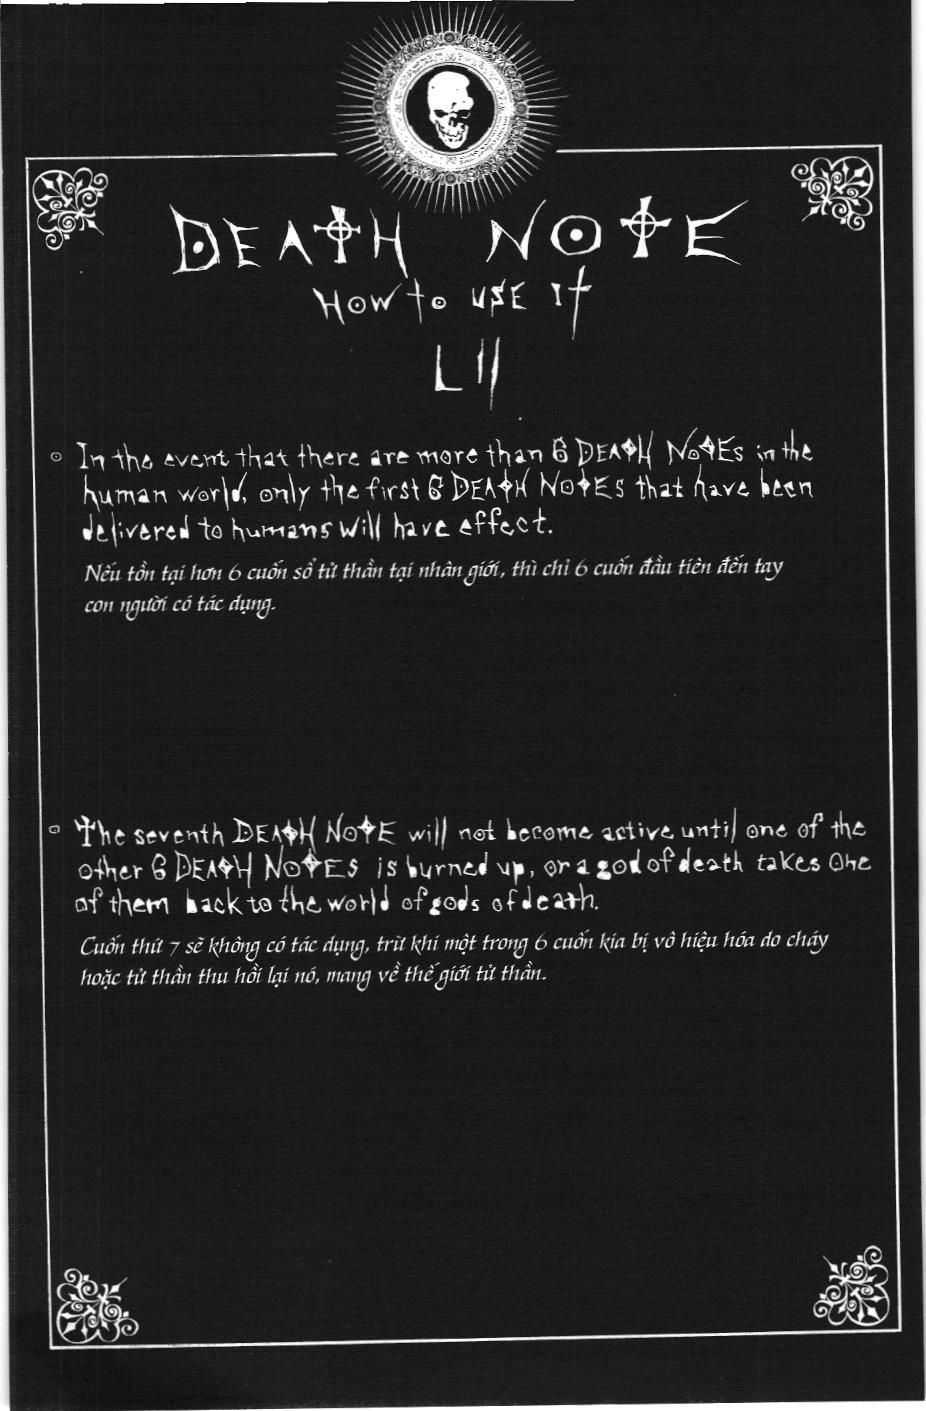 DEATH NOTE
HOW to USE It
LII
In the event that there are more than 6 DEATH NOTEs in the
human world, only the first 6 DEATH NOTES that have been
delivered to humans will have effect.
Nếu tồn tại hơn 6 cuốn sổ tử thần tại nhân giới, thì chỉ 6 cuốn đầu tiên đến tay
con người có tác dụng.
The seventh DEATH NOTE will not become active until one of the
other 6 DEATH NOTES is burned up, or a god of death takes One
of them back to the world of gods of death.
Cuốn thứ 7 sẽ không có tác dụng, trừ khi một trong 6 cuốn kia bị vô hiệu hóa do cháy
hoặc tử thần thu hồi lại nó, mang về thế giới tử thần.